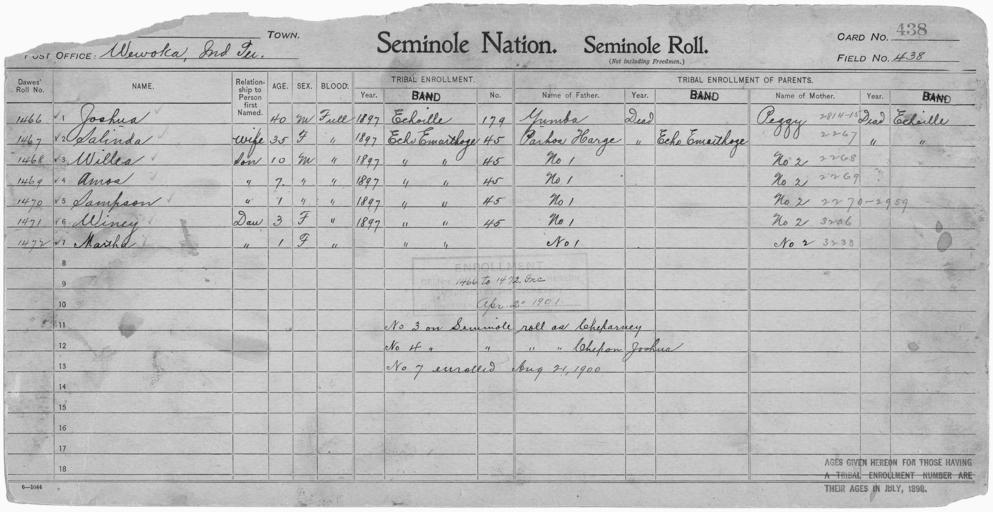 TOWN.
POST OFFICE: Wewoka, Ind Ter.
Seminole Nation. Seminole Roll.
(Not including Freedmen.)
CARD NO. 438
FIELD NO. 438
Dawes' Roll No. NAME. Relationship to Person first Named. AGE. SEX. BLOOD. TRIBAL ENROLLMENT. TRIBAL ENROLLMENT OF PARENTS.
Year. BAND No. Name of Father. Year. BAND Name of Mother. Year. BAND
1466 1 Joshua 40 M Full 1897 Echoille 179 Yumba Dead Peggy 2814-15 Dead Echoille
1467 2 Salinda Wife 35 F " 1897 Echo Emarthoge 45 Parhos Harge " Echo Emarthoge 2267 " "
1468 3 Willea Son 10 M " 1897 " " 45 No 1 No 2 2268
1469 4 Amos " 7 " " 1897 " " 45 No 1 No 2 2269
1470 5 Sampson " 1 " " 1897 " " 45 No 1 No 2 2270-2959
1471 6 Winey Dau 3 F " 1897 " " 45 No 1 No 2 3206
1472 7 Martha " 1 F " " " No 1 No 2 3238
8
ENROLLMENT
9 1466 to 1472 Inc
10 Apr 2" 1901
11 No 3 on Seminole roll as Cheparney
12 No 4 " " " " Chepon Joshua
13 No 7 enrolled Aug 21, 1900
14
15
16
17
18
AGES GIVEN HEREON FOR THOSE HAVING
A TRIBAL ENROLLMENT NUMBER ARE
THEIR AGES IN JULY, 1898.
6—1044